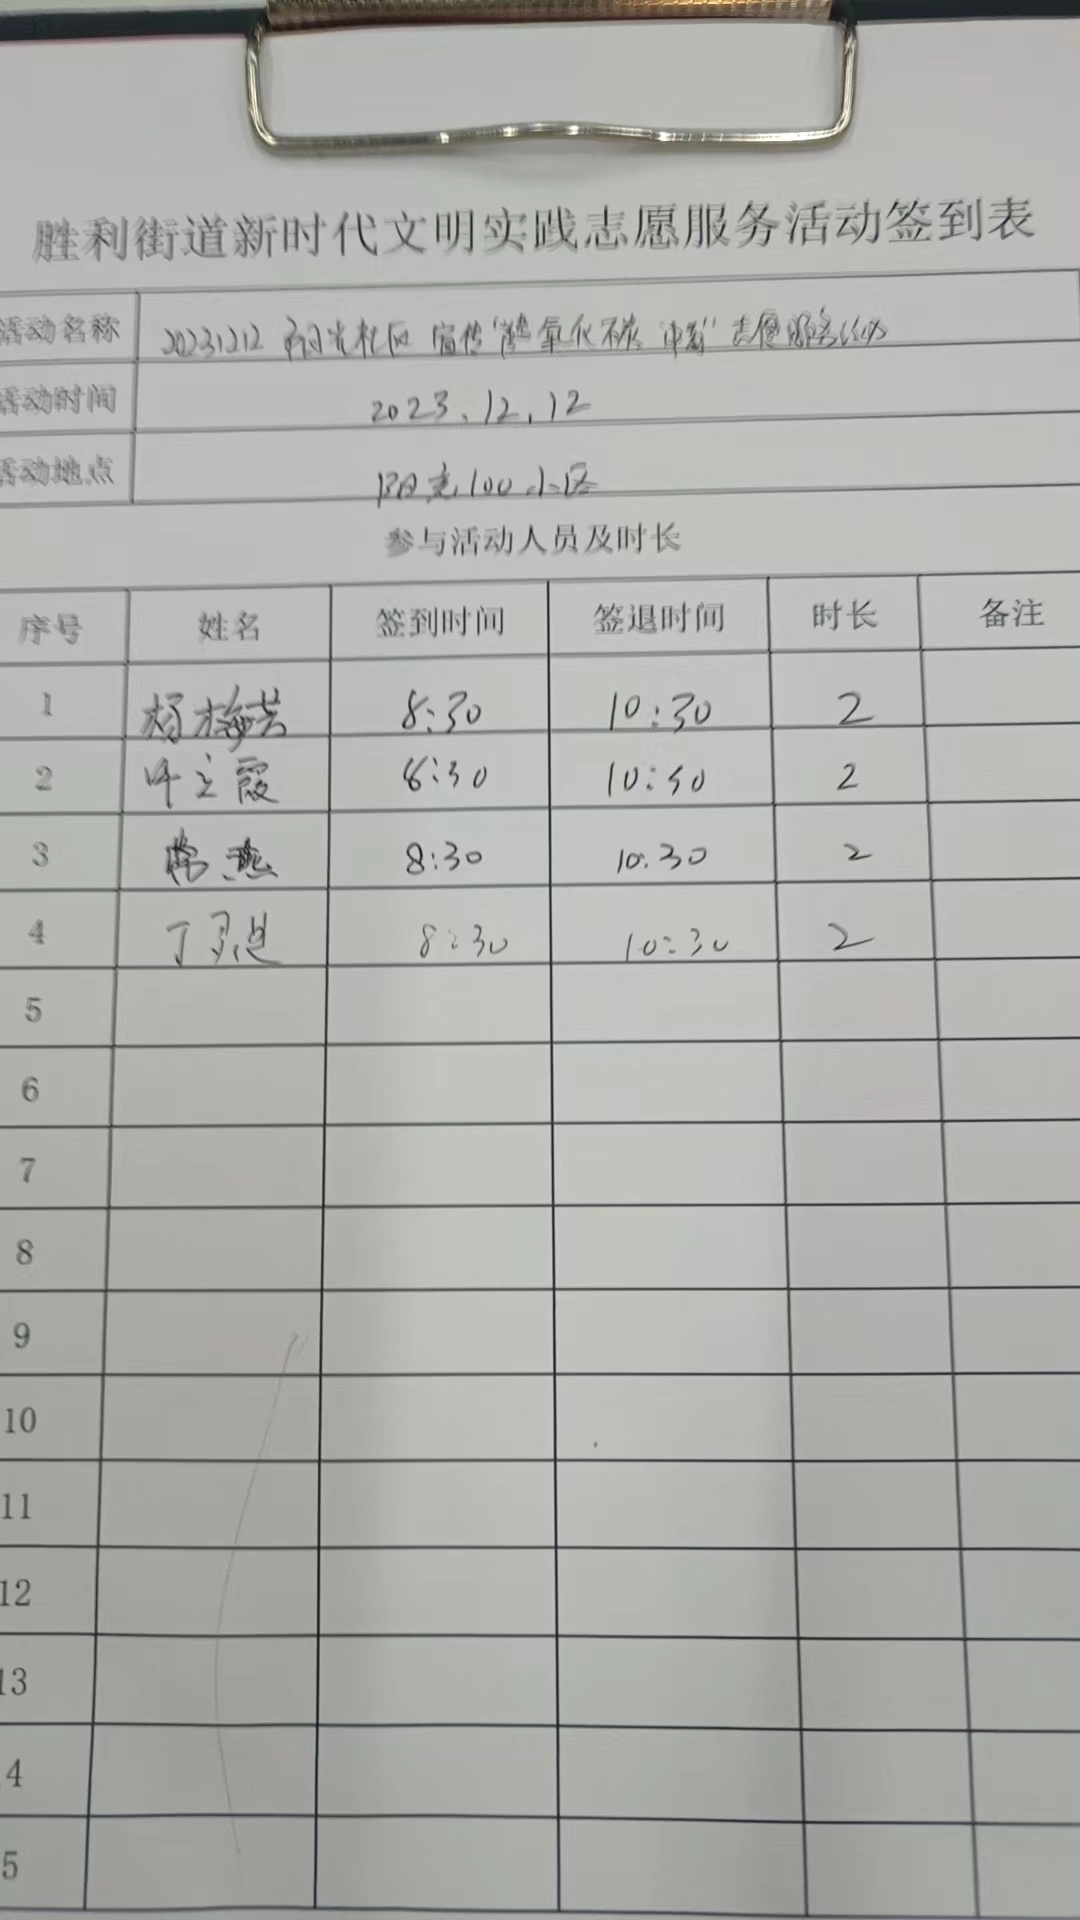 胜利街道新时代文明实践志愿服务活动签到表
活动名称 20231212 阳光社区 宣传"氧化碳 中毒"志愿服务活动
活动时间 2023.12.12
活动地点 阳光100小区
参与活动人员及时长
序号 姓名 签到时间 签退时间 时长 备注
1 杨梅芸 8:30 10:30 2
2 叶立霞 8:30 10:30 2
3 常燕 8:30 10.30 2
4 丁 8:30 10:30 2
5
6
7
8
9
10
11
12
13
4
5